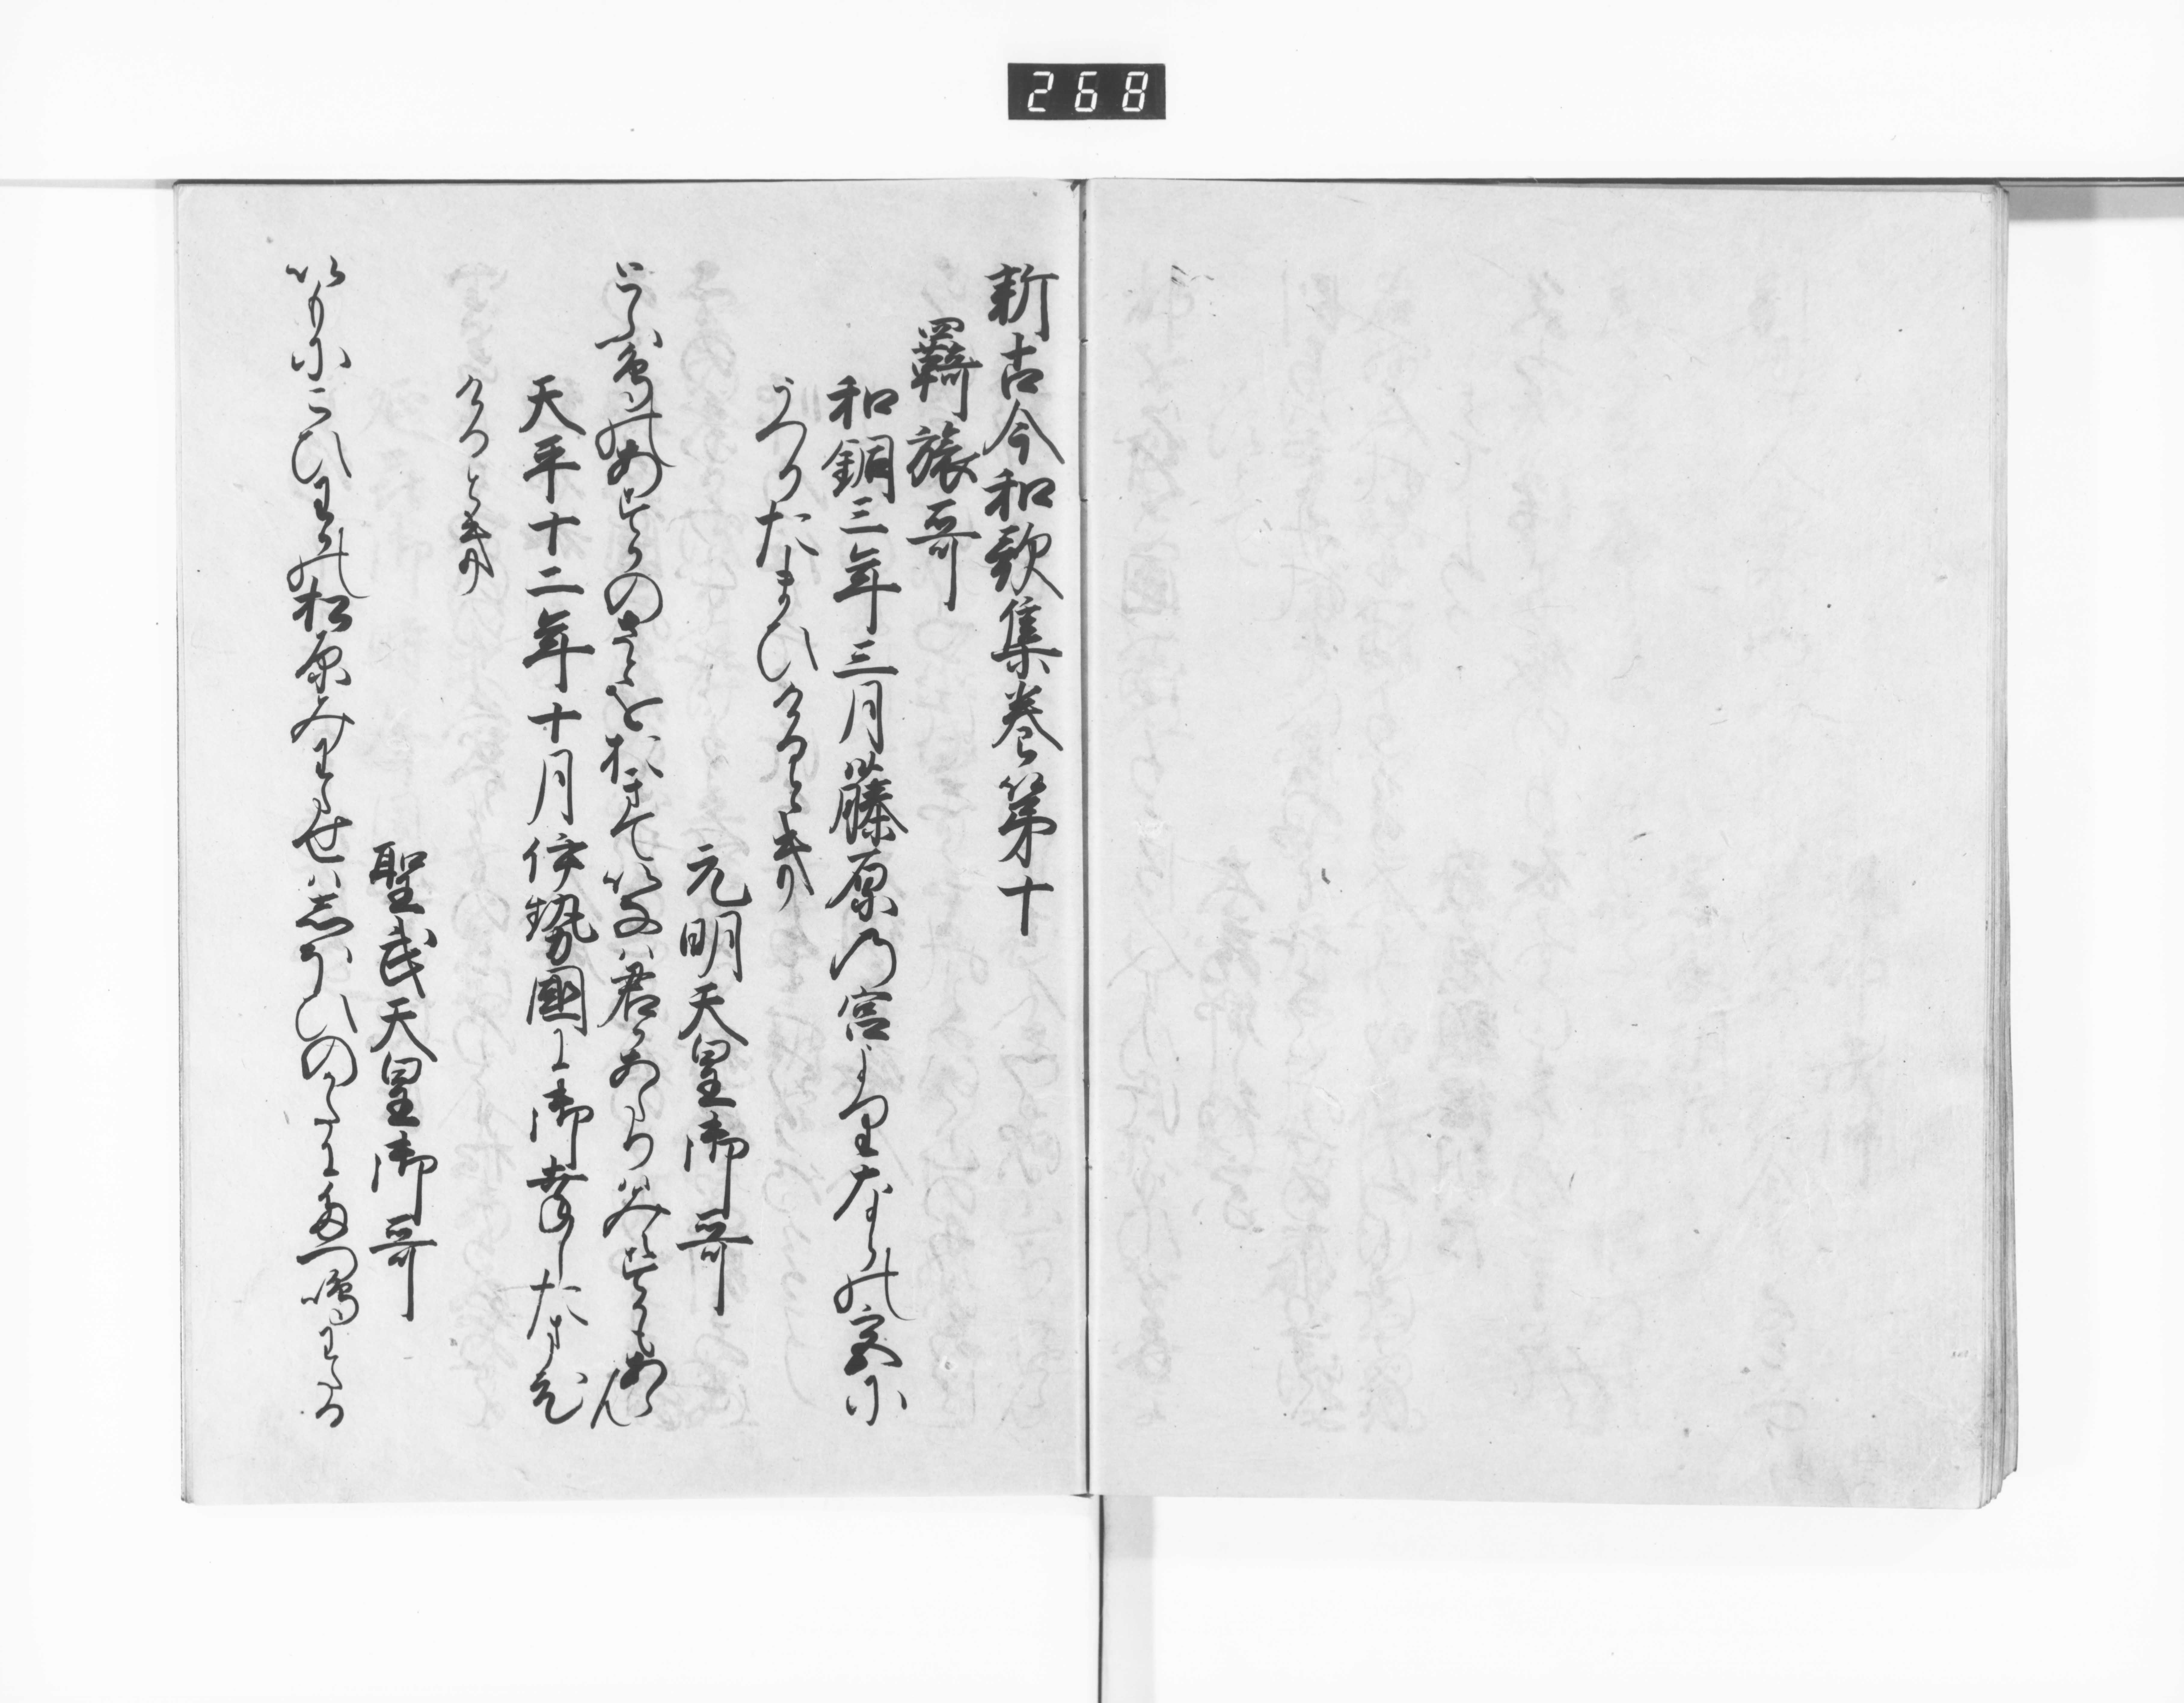 268
新古今和歌集巻第十
羇旅哥
和銅三年三月藤原乃宮よりならの宮に
うつりたまひけるとき
元明天皇御哥
とふ鳥のあすかのさとをおきていなは君かあたりはみえすかもあらん
天平十二年十月伊勢國に御幸したまひ
けるとき
聖武天皇御哥
いもにこひわかの松原みわたせはしほひのかたにたつ鳴わたる